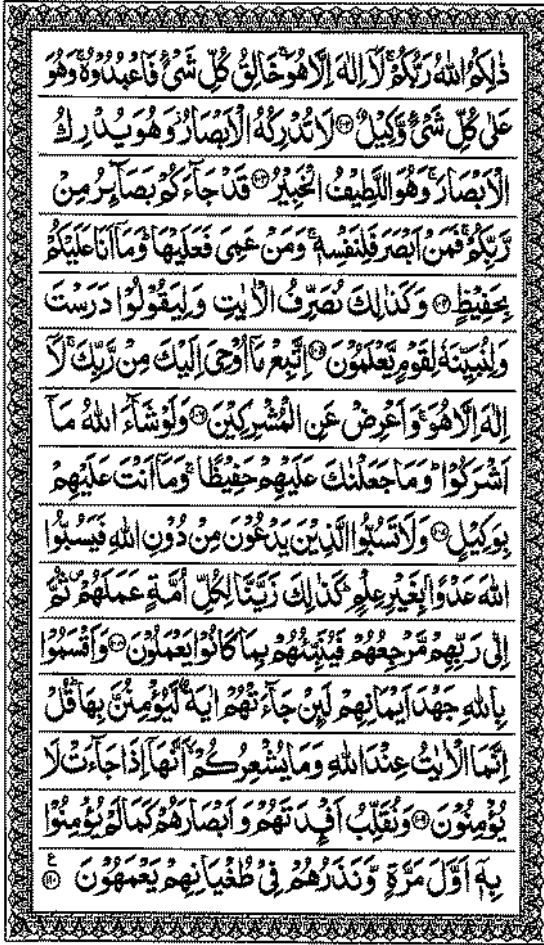 ذٰلِكُمُ اللّٰهُ رَبُّكُمْ ۚ لَاۤ اِلٰهَ اِلَّا هُوَ ۚ خَالِقُ كُلِّ شَیْءٍ فَاعْبُدُوْهُ ۚ وَهُوَ
عَلٰى كُلِّ شَیْءٍ وَّكِیْلٌ ﴿۱۰۲﴾ لَا تُدْرِكُهُ الْاَبْصَارُ ؗ وَهُوَ یُدْرِكُ
الْاَبْصَارَ ۚ وَهُوَ اللَّطِیْفُ الْخَبِیْرُ ﴿۱۰۳﴾ قَدْ جَآءَكُمْ بَصَآىِٕرُ مِنْ
رَّبِّكُمْ ۚ فَمَنْ اَبْصَرَ فَلِنَفْسِهٖ ۚ وَمَنْ عَمِیَ فَعَلَیْهَا ؕ وَمَاۤ اَنَا عَلَیْكُمْ
بِحَفِیْظٍ ﴿۱۰۴﴾ وَكَذٰلِكَ نُصَرِّفُ الْاٰیٰتِ وَلِیَقُوْلُوْا دَرَسْتَ
وَلِنُبَیِّنَهٗ لِقَوْمٍ یَّعْلَمُوْنَ ﴿۱۰۵﴾ اِتَّبِعْ مَاۤ اُوْحِیَ اِلَیْكَ مِنْ رَّبِّكَ ۚ لَاۤ
اِلٰهَ اِلَّا هُوَ ۚ وَاَعْرِضْ عَنِ الْمُشْرِكِیْنَ ﴿۱۰۶﴾ وَلَوْ شَآءَ اللّٰهُ مَاۤ
اَشْرَكُوْا ؕ وَمَا جَعَلْنٰكَ عَلَیْهِمْ حَفِیْظًا ۚ وَمَاۤ اَنْتَ عَلَیْهِمْ
بِوَكِیْلٍ ﴿۱۰۷﴾ وَلَا تَسُبُّوا الَّذِیْنَ یَدْعُوْنَ مِنْ دُوْنِ اللّٰهِ فَیَسُبُّوا
اللّٰهَ عَدْوًۢا بِغَیْرِ عِلْمٍ ؕ كَذٰلِكَ زَیَّنَّا لِكُلِّ اُمَّةٍ عَمَلَهُمْ ۪ ثُمَّ
اِلٰى رَبِّهِمْ مَّرْجِعُهُمْ فَیُنَبِّئُهُمْ بِمَا كَانُوْا یَعْمَلُوْنَ ﴿۱۰۸﴾ وَاَقْسَمُوْا
بِاللّٰهِ جَهْدَ اَیْمَانِهِمْ لَىِٕنْ جَآءَتْهُمْ اٰیَةٌ لَّیُؤْمِنُنَّ بِهَا ؕ قُلْ
اِنَّمَا الْاٰیٰتُ عِنْدَ اللّٰهِ وَمَا یُشْعِرُكُمْ ۙ اَنَّهَاۤ اِذَا جَآءَتْ لَا
یُؤْمِنُوْنَ ﴿۱۰۹﴾ وَنُقَلِّبُ اَفْـِٕدَتَهُمْ وَاَبْصَارَهُمْ كَمَا لَمْ یُؤْمِنُوْا
بِهٖۤ اَوَّلَ مَرَّةٍ وَّنَذَرُهُمْ فِیْ طُغْیَانِهِمْ یَعْمَهُوْنَ ﴿۱۱۰﴾ ع